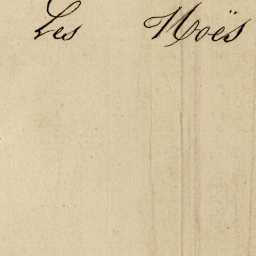 Les Noës